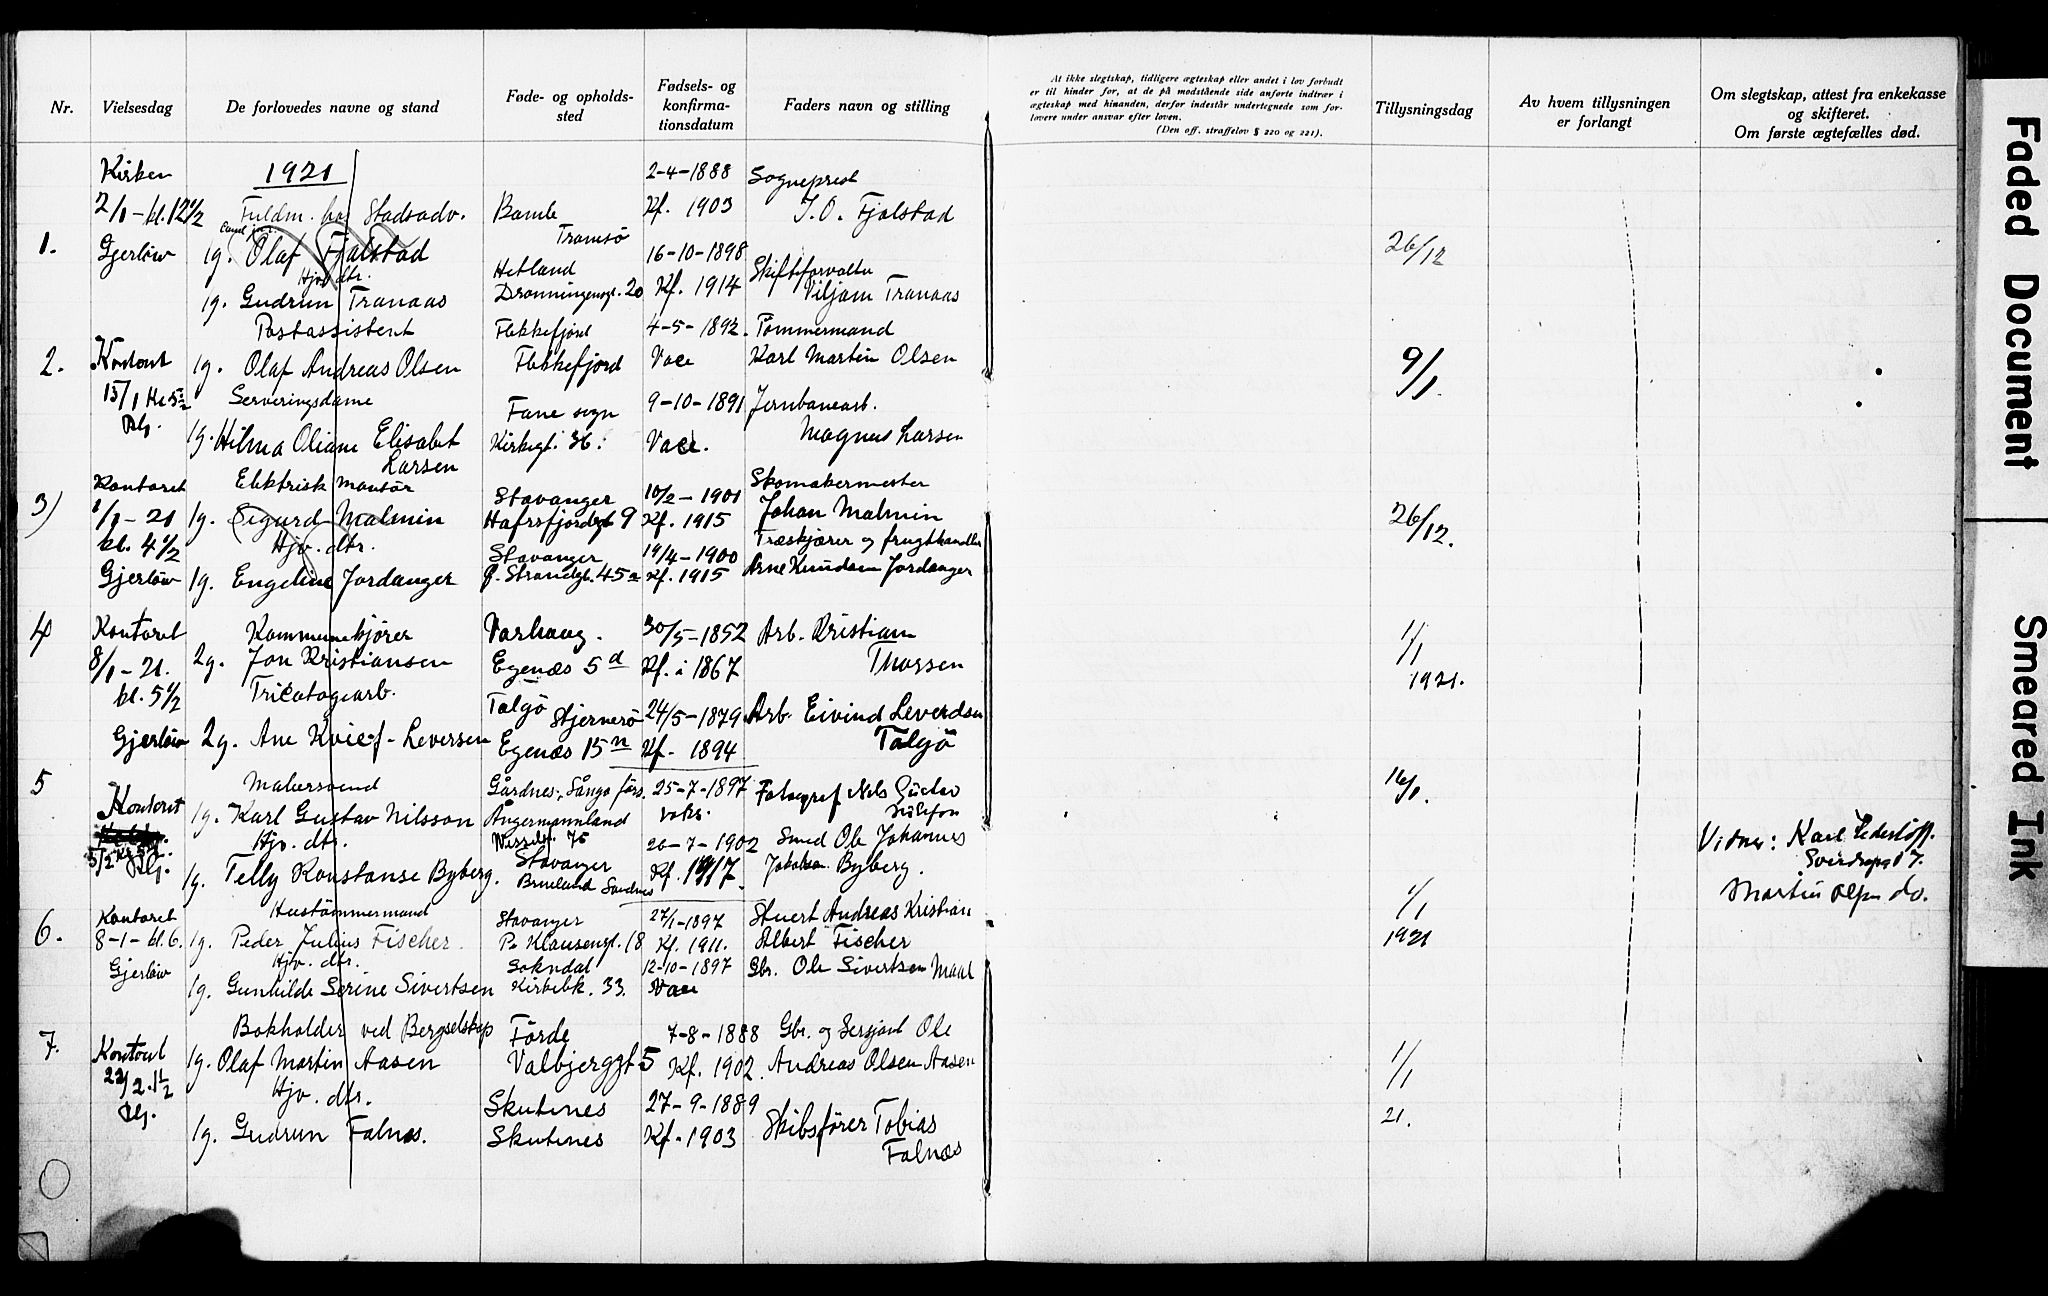 Nr.
Vielsesdag
De forlovedes navne og stand
Føde- og opholds-
sted
Fødsels- og
konfirma-
tionsdatum
Faders navn og stilling
At ikke slegtskap, tidligere ægteskap eller andet i lov forbudt
er til hinder for, at de på modstående side anførte indtrær i
ægteskap med hinanden, derfor indestår undertegnede som for-
lovere under ansvar efter loven.
(Den off. straffelov § 220 og 221).
Tillysningsdag
Av hvem tillysningen
er forlangt
Om slegtskap, attest fra enkekasse
og skifteret.
Om første ægtefælles død.
Kirken 1921 2-4-1888 Sogneprest
2/1 - kl. 12 1/2 Fuldm. hos Stadsadv. Bamle Kf. 1903 J. O. Fjalstad
Cand. jur. Tromsø
1. Gjerløw 1g. Olaf Fjalstad 16-10-1898 26/12
Hjv. dtr. Hetland Skifteforvalter
1g. Gudrun Tranaas Dronningensgt. 20 Kf. 1914 Viljam Tranaas
Postassistent Flekkefjord 4-5-1892 Tømmermand
2. Kontoret 1g. Olaf Andreas Olsen Flekkefjord Vace Karl Martin Olsen 9/1
15/1 Kl 5 1/2 Serveringsdame Fane sogn 9-10-1891 Jernbanearb.
1g. Hilma Oliane Elisabet Kirkegt. 36. Vace. Magnus Larsen
Larsen
Kontoret Elektrisk Montør Stavanger 10/2-1901 Skomakermester
3) 8/1-21 1g. Sigurd Malmin Hafrsfjordsgt 9 Kf. 1915 Johan Malmin 26/12.
kl. 4 1/2 Hjv. dtr. Stavanger 19/4-1900 Træskjærer og frugthandler
Gjerløw 1g. Engeline Jordanger Strandgt. 45a Kf. 1915 Arne Knudsen Jordanger
4 Kontoret Kommunekjører Varhaug. 30/5-1852 Arb. Kristian 1/1
8/1-21. 2g. Jon Kristiansen Egenæs 5 d Kf. i 1867 Thorsen
kl. 5 1/2 Tricotagearb. Talgø 1921.
Stjernerø 24/5-1879 Arb. Eivind Leverdsen
Gjerløw 2g. Ane - Leversen Egenæs 15 n Kf. 1894 Talgø
5 Malersvend Gårdnes, Sånga förs. 25-7-1897 Fotograf Nels Gustav 16/1.
Kontoret 1g. Karl Gustav Nilsson Ångermannland voks.
Hjv. dtr. 75 20-7-1902 Smed Ole Johannes Vidner:
5/2 Stavanger
1g. Telly Konstanse Byberg. Brueland Sandnes Kf. 1917. Jakobsen Byberg. do.
Hustømmermand Stavanger 27/1-1897 Stuert Andreas Kristian 1/1
6. Kontoret
8-1-kl. 6. 1g. Peder Julius Fischer. P. Klausensgt. 18 Kf. 1911. Albert Fischer 1921
Hjv. dtr. Sokndal 12-10-1897 Gbr. Ole Sivertsen
Gjerløw 1g. Gunhilde Serine Sivertsen Kirkebk. 33. Vace
Bokholder ved Bergselskap Førde 7-8-1888 Gbr. og Sersjant Ole
7. Kontoret 1g. Olaf Martin Aasen Valbjerggt 5 Kf. 1902. Andreas Olsen Aasen 1/1
22/2. 1 1/2 Hjv. dtr.
Skutnes 27-9-1889 Skibsfører Tobias 21.
1g. Gudrun Falnes. Skutnes Kf. 1903 Falnæs
Faded Document
Smeared Ink